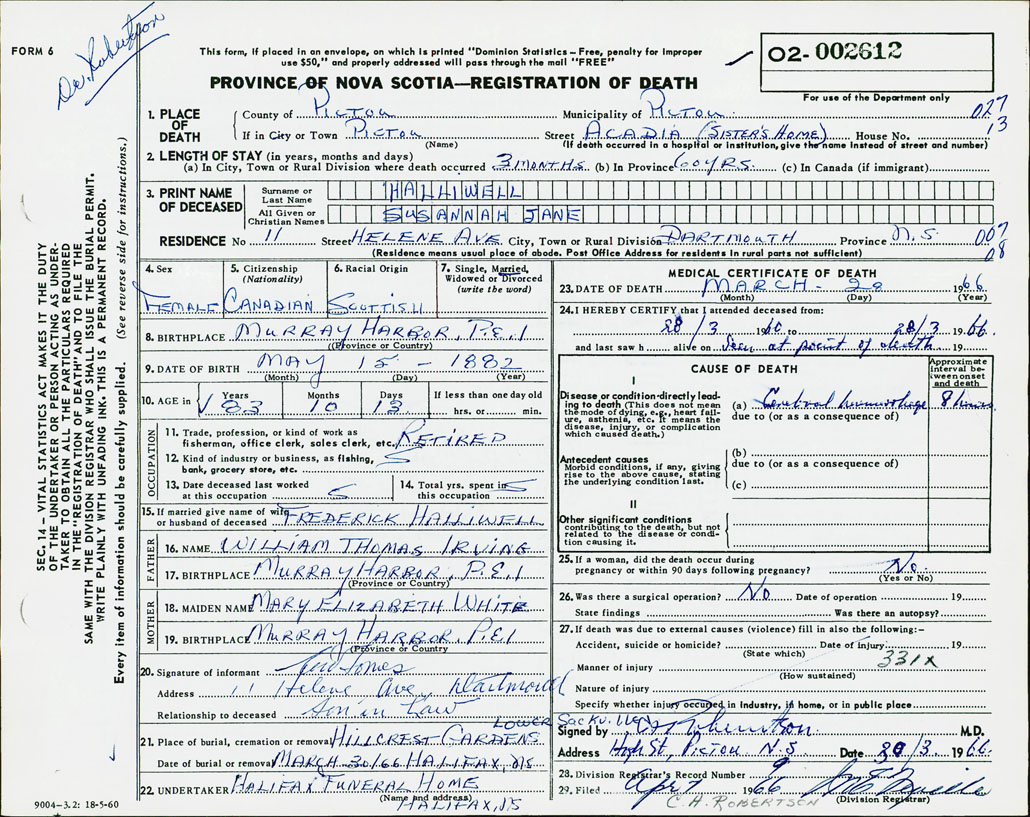 FORM 6
Dr. Robertson
This form, if placed in an envelope, on which is printed "Dominion Statistics – Free, penalty for improper
use $50," and properly addressed will pass through the mail "FREE"
02- 002612
PROVINCE OF NOVA SCOTIA—REGISTRATION OF DEATH
For use of the Department only
1. PLACE OF DEATH
County of PICTOU Municipality of PICTOU 027
If in City or Town PICTOU Street ACADIA (SISTER'S HOME) House No. 13
(Name) (If death occurred in a hospital or institution, give the name instead of street and number)
2. LENGTH OF STAY (in years, months and days)
(a) In City, Town or Rural Division where death occurred 3 MONTHS (b) In Province 60 YRS. (c) In Canada (if immigrant)
3. PRINT NAME OF DECEASED
Surname or Last Name HALLIWELL
All Given or Christian Names SUSANNAH JANE
RESIDENCE No 11 Street HELENE AVE City, Town or Rural Division DARTMOUTH Province N.S. 007
(Residence means usual place of abode. Post Office Address for residents in rural parts not sufficient) 08
4. Sex
FEMALE
5. Citizenship
(Nationality)
CANADIAN
6. Racial Origin
SCOTTISH
7. Single, Married,
Widowed or Divorced
(write the word)
8. BIRTHPLACE MURRAY HARBOR, P.E.I
(Province or Country)
9. DATE OF BIRTH MAY 15 - 1882
(Month) (Day) (Year)
10. AGE in Years 83 Months 10 Days 13 If less than one day old
hrs. or min.
OCCUPATION
11. Trade, profession, or kind of work as
fisherman, office clerk, sales clerk, etc. RETIRED
12. Kind of industry or business, as fishing,
bank, grocery store, etc.
13. Date deceased last worked
at this occupation
14. Total yrs. spent in
this occupation
15. If married give name of wife
or husband of deceased FREDERICK HALLIWELL
FATHER
16. NAME WILLIAM THOMAS IRVING
17. BIRTHPLACE MURRAY HARBOR, P.E.I
(Province or Country)
MOTHER
18. MAIDEN NAME MARY ELIZABETH WHITE
19. BIRTHPLACE MURRAY HARBOR, P.E.I
(Province or Country
20. Signature of informant Jones
Address 11 Helene Ave, Dartmouth
Relationship to deceased Son in Law
LOWER Sackville
21. Place of burial, cremation or removal HILLCREST GARDENS
Date of burial or removal MARCH 30/66 HALIFAX, NS
22. UNDERTAKER HALIFAX FUNERAL HOME
(Name and address)
HALIFAX, NS
MEDICAL CERTIFICATE OF DEATH
23. DATE OF DEATH MARCH - 28 1966
(Month) (Day) (Year)
24. I HEREBY CERTIFY that I attended deceased from:
28/3 19 to 28/3 1966
and last saw h alive on Seen at point of death 19
CAUSE OF DEATH
Approximate
interval be-
tween onset
and death
I
Disease or condition directly lead-
ing to death (This does not mean
the mode of dying, e.g., heart fail-
ure, asthenia, etc. It means the
disease, injury, or complication
which caused death.)
(a) Cerebral hemorrhage 8 hours
due to (or as a consequence of)
Antecedent causes
Morbid conditions, if any, giving
rise to the above cause, stating
the underlying condition last.
(b)
due to (or as a consequence of)
(c)
II
Other significant conditions
contributing to the death, but not
related to the disease or condi-
tion causing it.
25. If a woman, did the death occur during
pregnancy or within 90 days following pregnancy? No.
(Yes or No)
26. Was there a surgical operation? No Date of operation 19
State findings Was there an autopsy?
27. If death was due to external causes (violence) fill in also the following:–
Accident, suicide or homicide? Date of injury 19
(State which)
331X
Manner of injury
(How sustained)
Nature of injury
Specify whether injury occurred in industry, in home, or in public place
Signed by Robertson M.D.
Address High St, Pictou N.S Date 30/3 1966
28. Division Registrar's Record Number 9
29. Filed April 1966
C. H. ROBERTSON (Division Registrar)
SEC. 14 – VITAL STATISTICS ACT MAKES IT THE DUTY
OF THE UNDERTAKER OR PERSON ACTING AS UNDER-
TAKER TO OBTAIN ALL THE PARTICULARS REQUIRED
IN THE "REGISTRATION OF DEATH" AND TO FILE THE
SAME WITH THE DIVISION REGISTRAR WHO SHALL ISSUE THE BURIAL PERMIT.
WRITE PLAINLY WITH UNFADING INK. THIS IS A PERMANENT RECORD.
Every item of information should be carefully supplied. (See reverse side for instructions.)
9004–3.2: 18-5-60